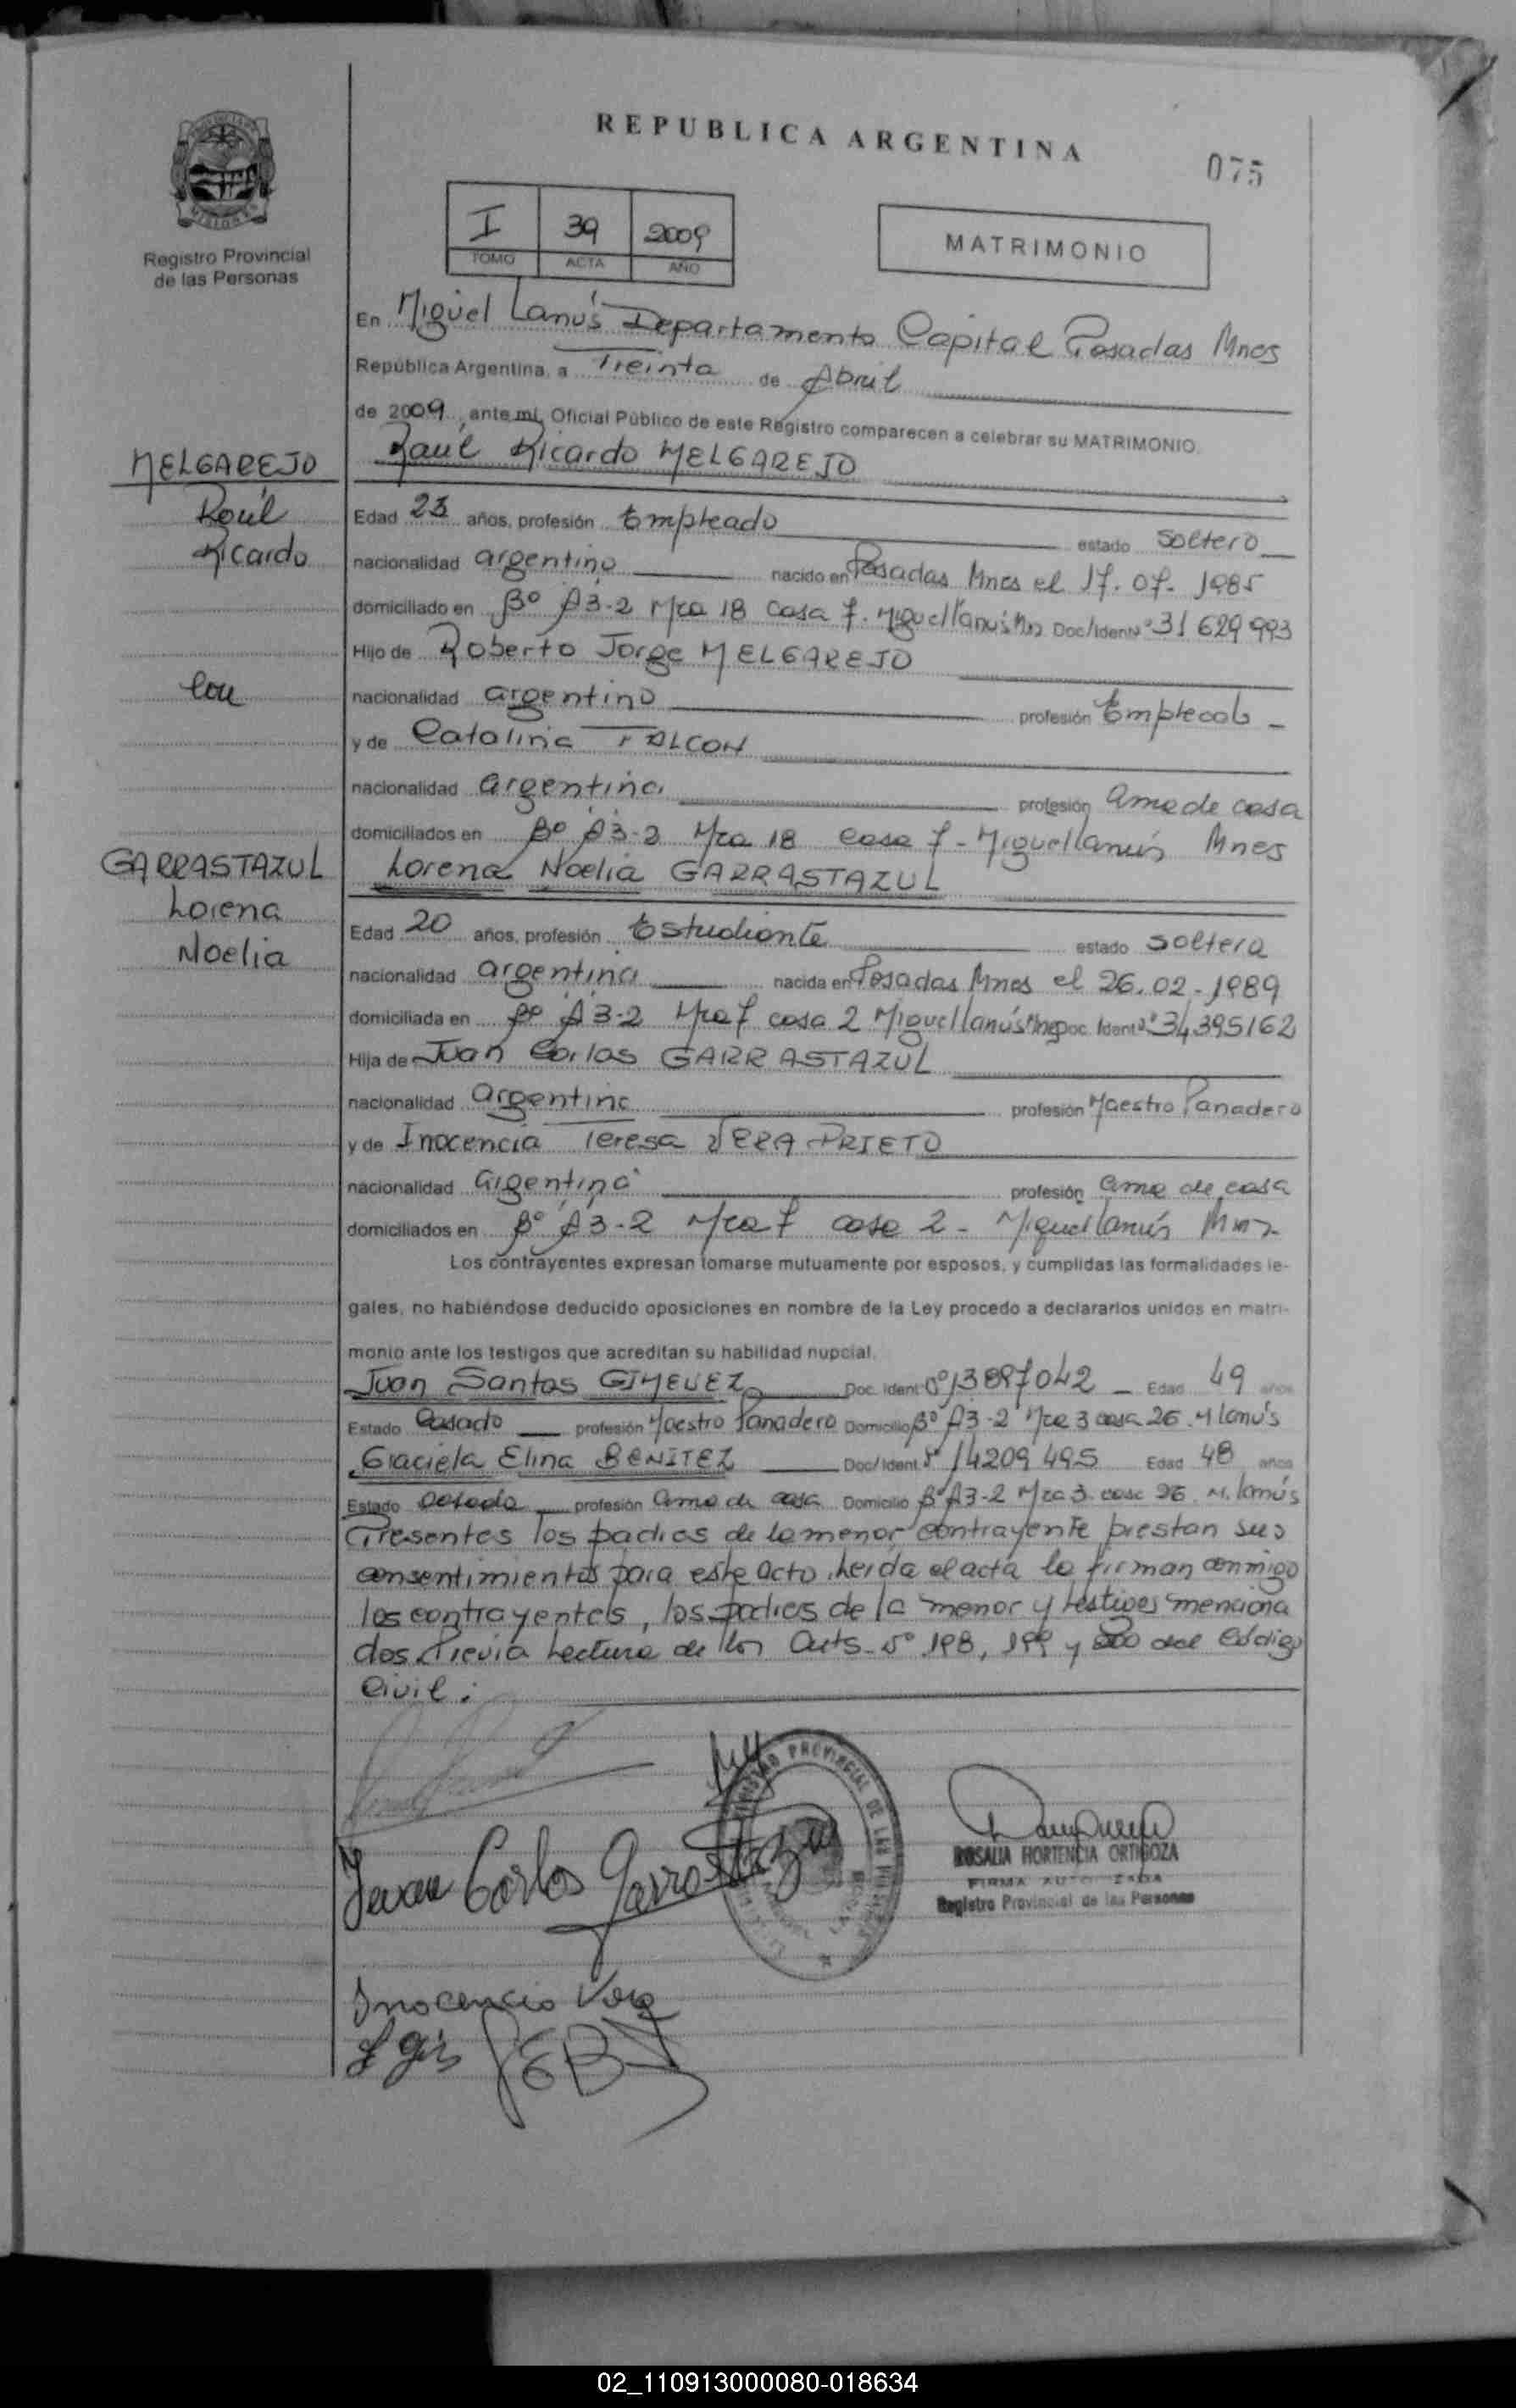 REPUBLICA ARGENTINA
075
Registro Provincial
de las Personas
I 39 2009
TOMO ACTA AÑO
MATRIMONIO
En Miguel Lanús Departamento Capital Posadas Mnes
República Argentina, a Treinta de Abril
de 2009, ante mi, Oficial Público de este Registro comparecen a celebrar su MATRIMONIO.
MELGAREJO
Raúl
Ricardo
con
GARRASTAZUL
Lorena
Noelia
Raúl Ricardo MELGAREJO
Edad 23 años, profesión Empleado estado Soltero
nacionalidad argentino nacido en Posadas Mnes el 17-07-1985
domiciliado en Bº A3-2 Mza 18 Casa 7-Miguel Lanús Mn Doc/Ident Nº 31 629 993
Hijo de Roberto Jorge MELGAREJO
nacionalidad argentino profesión Empleado -
y de Catalina FALCON
nacionalidad argentina profesión ama de casa
domiciliados en Bº A3-2 Mza 18 casa 7-Miguel Lanús Mnes
Lorena Noelia GARRASTAZUL
Edad 20 años, profesión Estudiante estado soltera
nacionalidad argentina nacida en Posadas Mnes el 26.02-1989
domiciliada en Bº A3-2 Mza 7 casa 2 Miguel Lanús Doc. Ident Nº 34 395162
Hija de Juan Carlos GARRASTAZUL
nacionalidad argentino profesión Maestro Panadero
y de Inocencia Teresa VERA PRIETO
nacionalidad argentina profesión ama de casa
domiciliados en Bº A3-2 Mza 7 casa 2- Miguel Lanús
Los contrayentes expresan tomarse mutuamente por esposos, y cumplidas las formalidades le-
gales, no habiéndose deducido oposiciones en nombre de la Ley procedo a declararlos unidos en matri-
monio ante los testigos que acreditan su habilidad nupcial.
Juan Santos GIMENEZ Doc. Ident Nº 13897042 - Edad 49 años
Estado Casado profesión Maestro Panadero Domicilio Bº A3-2 Mza 3 casa 26. M Lanús
Graciela Elina BENITEZ Doc/Ident Nº 14209 495 Edad 48 años
Estado Casada profesión ama de casa Domicilio Bº A3-2 Mza 3 casa 26. M. Lanús
Presentes los padres de la menor contrayente prestan sus
consentimientos para este acto. Leída el acta la firman conmigo
los contrayentes, los padres de la menor y testigos menciona
dos Previa Lectura de los Arts-Nº 198, 199 y 200 del Código
Civil:
Juan Carlos Garrastazul
REGISTRO PROVINCIAL DE LAS PERSONAS
ROSALIA HORTENCIA ORTIGOZA
FIRMA AUTORIZADA
Registro Provincial de las Personas
Inocencia Vera
GEB
02_110913000080-018634